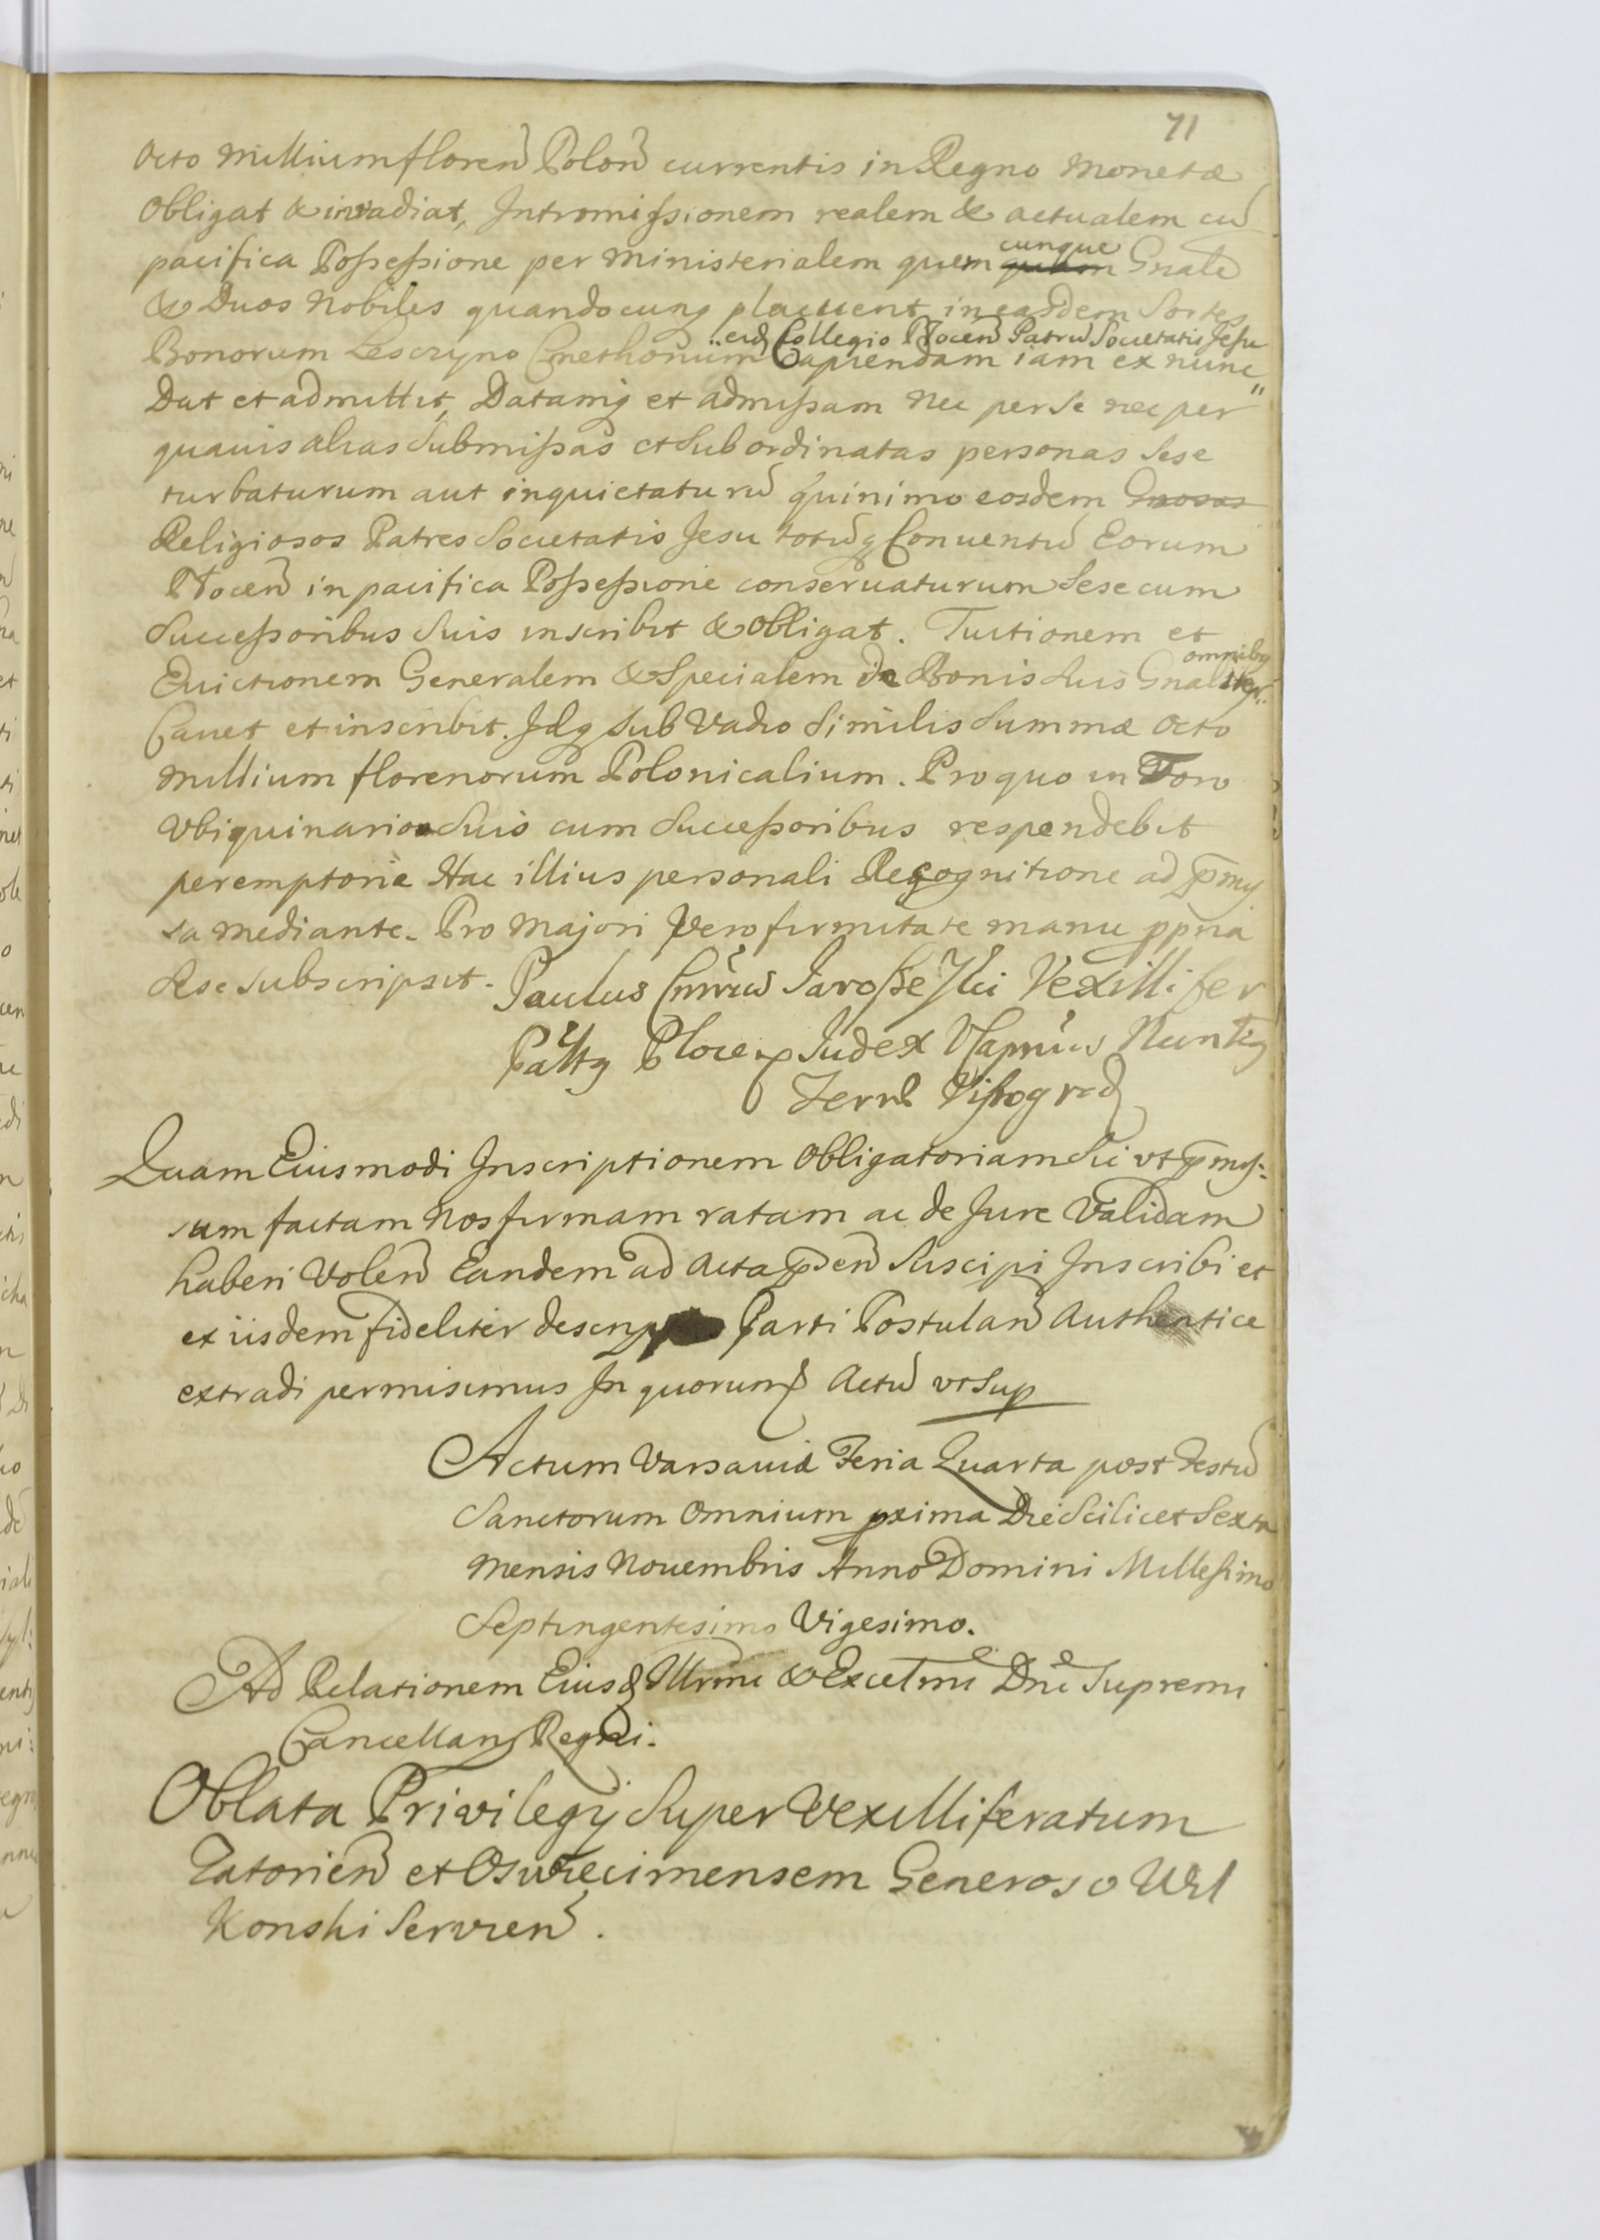 71
Octo Millium floren Polon currentis in Regno Monetæ
Obligat & invadiat, Intromissionem realem & actualem cu
pacifica Possessione per Ministerialem quemcunque Gnale
& Duos Nobiles quandocunq placuerit in easdem Sortes
eid Collegio Plocen Patru Societatis Jesu
Bonorum Leszczyno Cmethonum Capiendam iam ex nunc
Dat et admittit, Datamq et admissam Nec per Se nec per
quauis alias Submissas et Subordinatas personas Sese
turbaturum aut inquietaturu quinimo eosdem Gnosos
Religiosos Patres Societatis Jesu totuq Conuentu Eorum
Plocen in pacifica Possessione conseruaturum Sese cum
Successoribus Suis inscribit & Obligat. Tuitionem et
omnibq
Euictionem Generalem & Specialem de Bonis Suis Gnaliter
Cauet et inscribit. Idq Sub Vadio Similis Summæ Octo
Millium florenorum Polonicalium. Pro quo in Foro
Vbiquinario Suis cum Successoribus respondebit
peremptorie Hac illius personali Recognitione ad præmis
sa mediante. Pro Majori Vero firmitate manu ppria
Sese Subscripsit. Paulus Jaroszewski Vexillifer
Plocen Judex Nuntiq
Terræ Visogrod
Quam Eiusmodi Inscriptionem Obligatoriam Sic vt præmis:
sam factam Nos firmam ratam ac de Jure Validam
haberi Volen Eandem ad Acta præsen Suscipi Inscribi et
ex iisdem fideliter descriptam Parti Postulan Authentice
extradi permisimus In quorum Actu vt Sup
Actum Varsauiæ Feria Quarta post Festu
Sanctorum Omnium pxima Die Scilicet Sexta
Mensis Nouembris Anno Domini Millesimo
Septingentesimo Vigesimo.
Ad Relationem Eiusd Illrmi & Excelmi Dni Supremi
Cancellarij Regni.
Oblata Privilegij Super Vexilliferatum
Zatorien et Oswiecimensem Generoso Wil
Konski Servien.